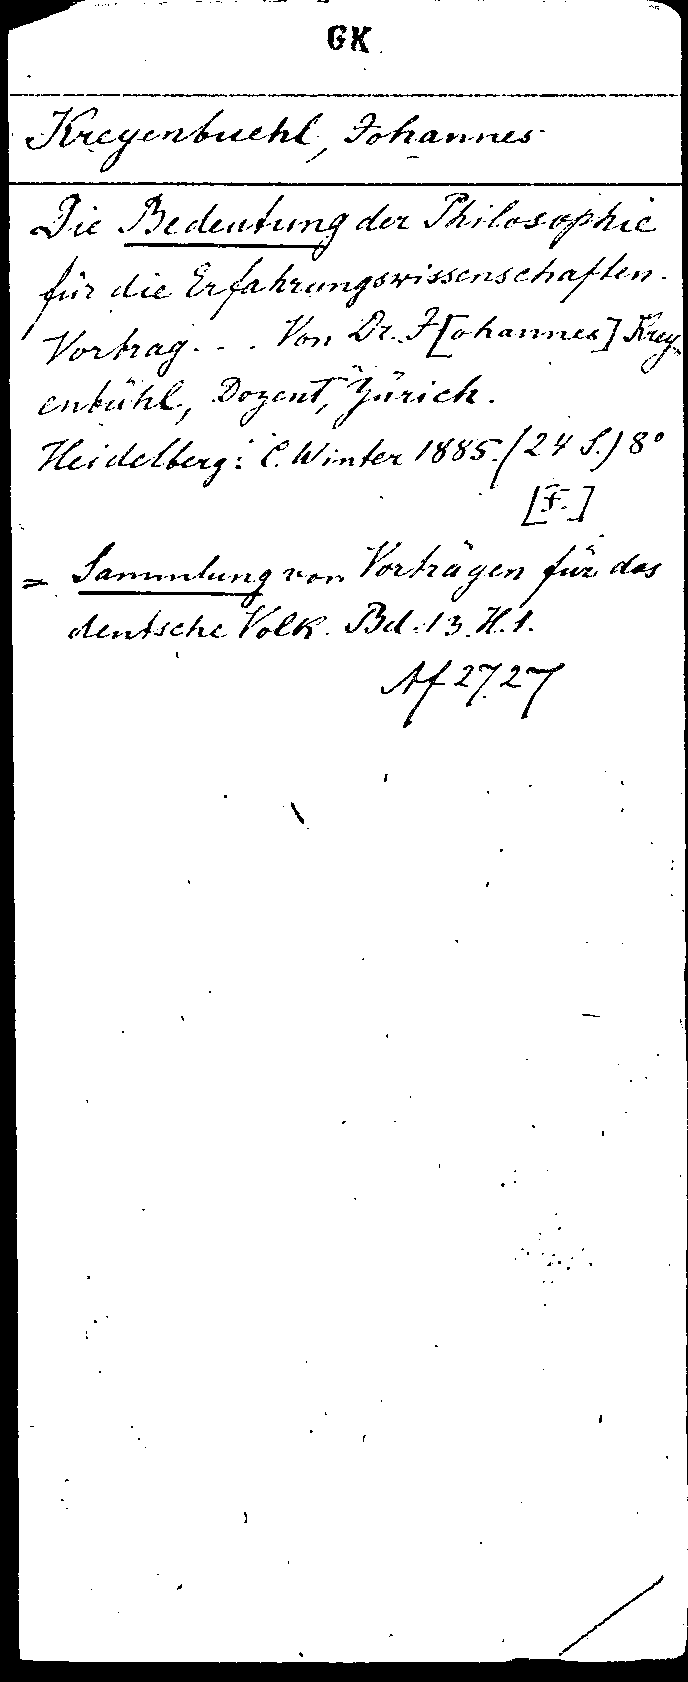 GK
Kreyenbuehl, Johannes
Die Bedeutung der Philosophie
für die Erfahrungswissenschaften.
Vortrag . . . Von Dr. J[ohannes] Krey-
enbühl, Dozent, Zürich.
Heidelberg: C. Winter 1885. (24 S.) 8°
[F.]
= Sammlung von Vorträgen für das
deutsche Volk. Bd. 13, H. 1.
Af 2727